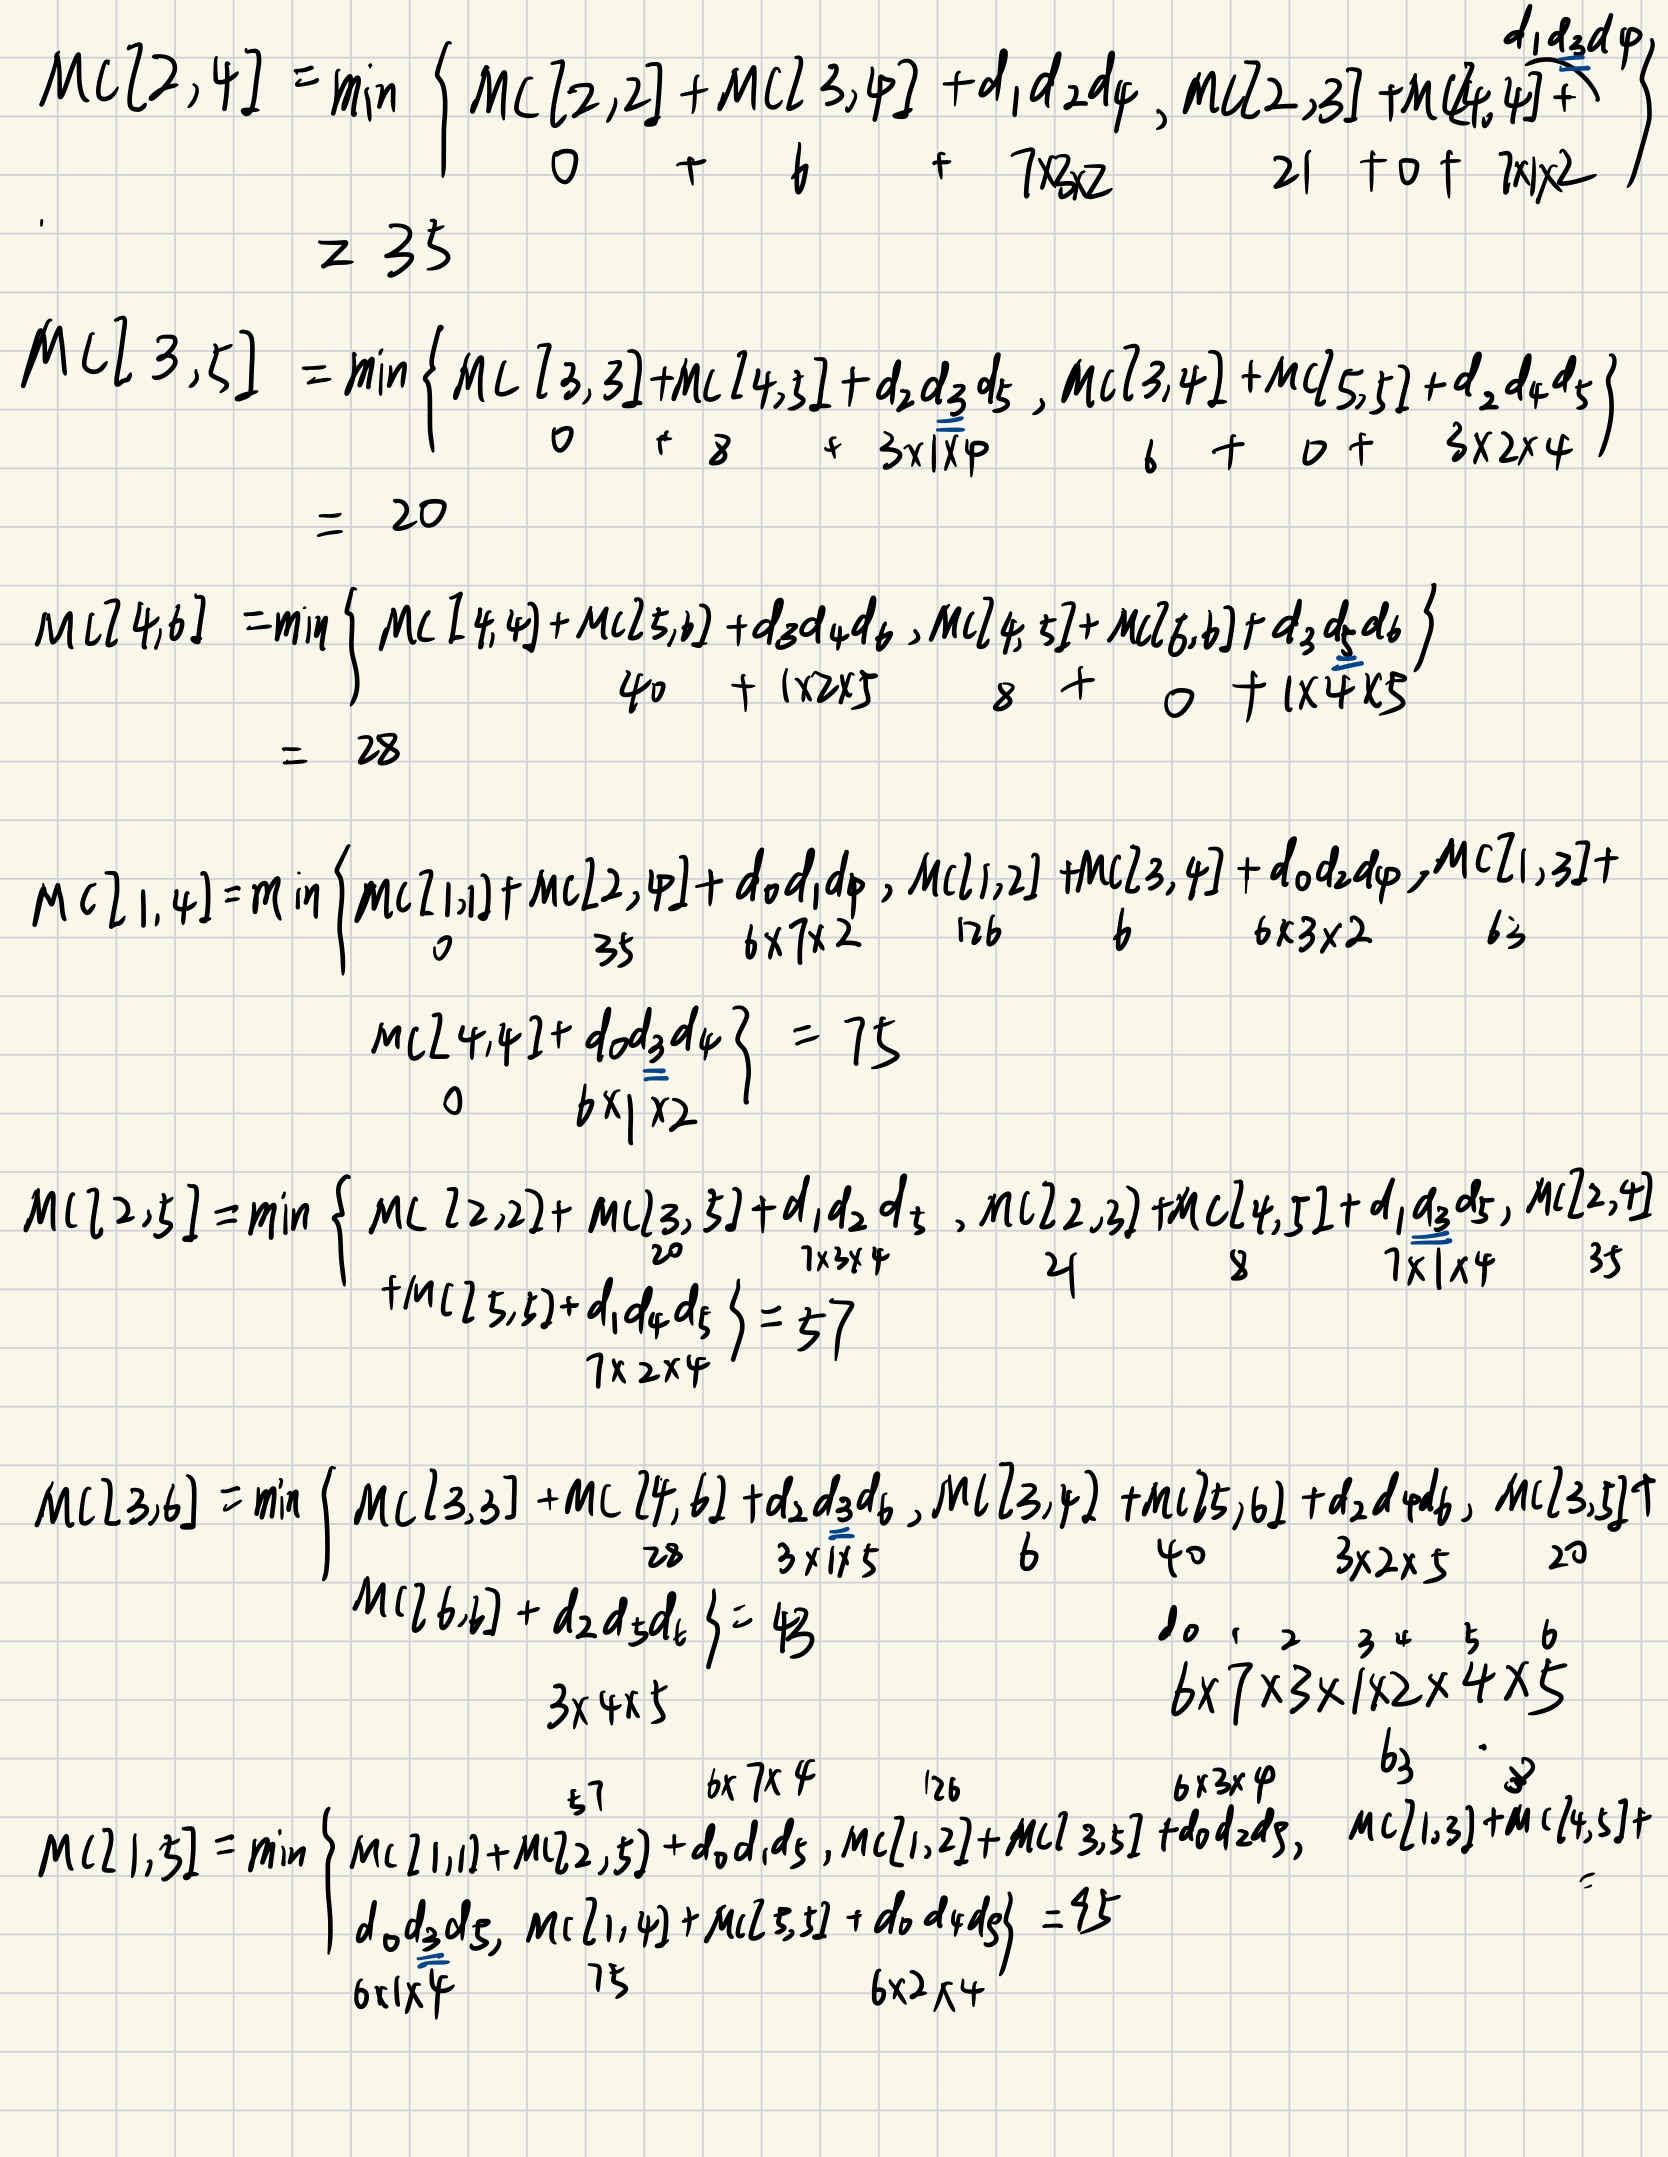 d₁d₃d₄
MC[2,4] = min { MC[2,2] + MC[3,4] + d₁d₂d₄, MC[2,3] + MC[4,4] + }
0 + 6 + 7×3×2 21 + 0 + 7×1×2
= 35
MC[3,5] = min { MC[3,3] + MC[4,5] + d₂d₃d₅, MC[3,4] + MC[5,5] + d₂d₄d₅ }
0 + 8 + 3×1×4 6 + 0 + 3×2×4
= 20
MC[4,6] = min { MC[4,4] + MC[5,6] + d₃d₄d₆, MC[4,5] + MC[6,6] + d₃d₅d₆ }
40 + 1×2×5 8 + 0 + 1×4×5
= 28
MC[1,4] = min { MC[1,1] + MC[2,4] + d₀d₁d₄, MC[1,2] + MC[3,4] + d₀d₂d₄, MC[1,3] +
0 35 6×7×2 126 6 6×3×2 63
MC[4,4] + d₀d₃d₄ } = 75
0 6×1×2
MC[2,5] = min { MC[2,2] + MC[3,5] + d₁d₂d₅, MC[2,3] + MC[4,5] + d₁d₃d₅, MC[2,4]
20 7×3×4 21 8 7×1×4 35
+ MC[5,5] + d₁d₄d₅ } = 57
7×2×4
MC[3,6] = min { MC[3,3] + MC[4,6] + d₂d₃d₆, MC[3,4] + MC[5,6] + d₂d₄d₆, MC[3,5] +
28 3×1×5 6 40 3×2×5 20
MC[6,6] + d₂d₅d₆ } = 43
3×4×5
d₀ 1 2 3 4 5 6
6×7×3×1×2×4×5
57 6×7×4 126 6×3×4 63 8
MC[1,5] = min { MC[1,1] + MC[2,5] + d₀d₁d₅, MC[1,2] + MC[3,5] + d₀d₂d₅, MC[1,3] + MC[4,5] +
d₀d₃d₅, MC[1,4] + MC[5,5] + d₀d₄d₅ } = 95
6×1×4 75 6×2×4